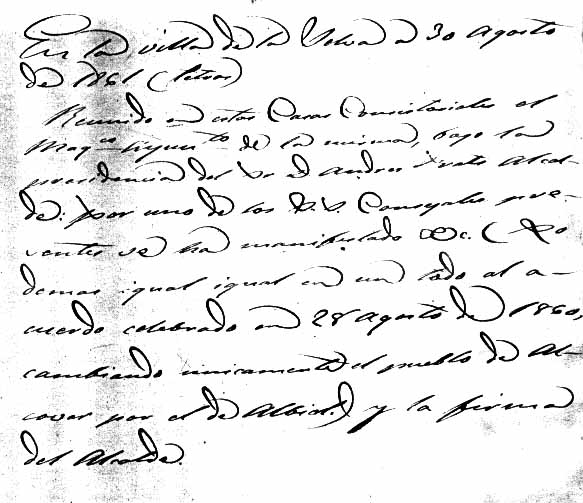 En la villa de la Selva a 30 Agosto
de 1861 (letras)
Reunido en estas Casas Consistoriales el
Mag.co Ayunt.to de la misma, bajo la
presidencia del Sr D Andres Alcal-
de: por uno de los S.S. Consejales pre-
sentes se ha manifestado &c. (Lo
demas igual igual en un todo al a-
cuerdo celebrado en 28 Agosto de 1860,
cambiando unicamente el pueblo de Al-
cover por el de Albiol) y la firma
del Alcalde.